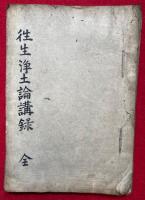 徃生淨土論講録 全